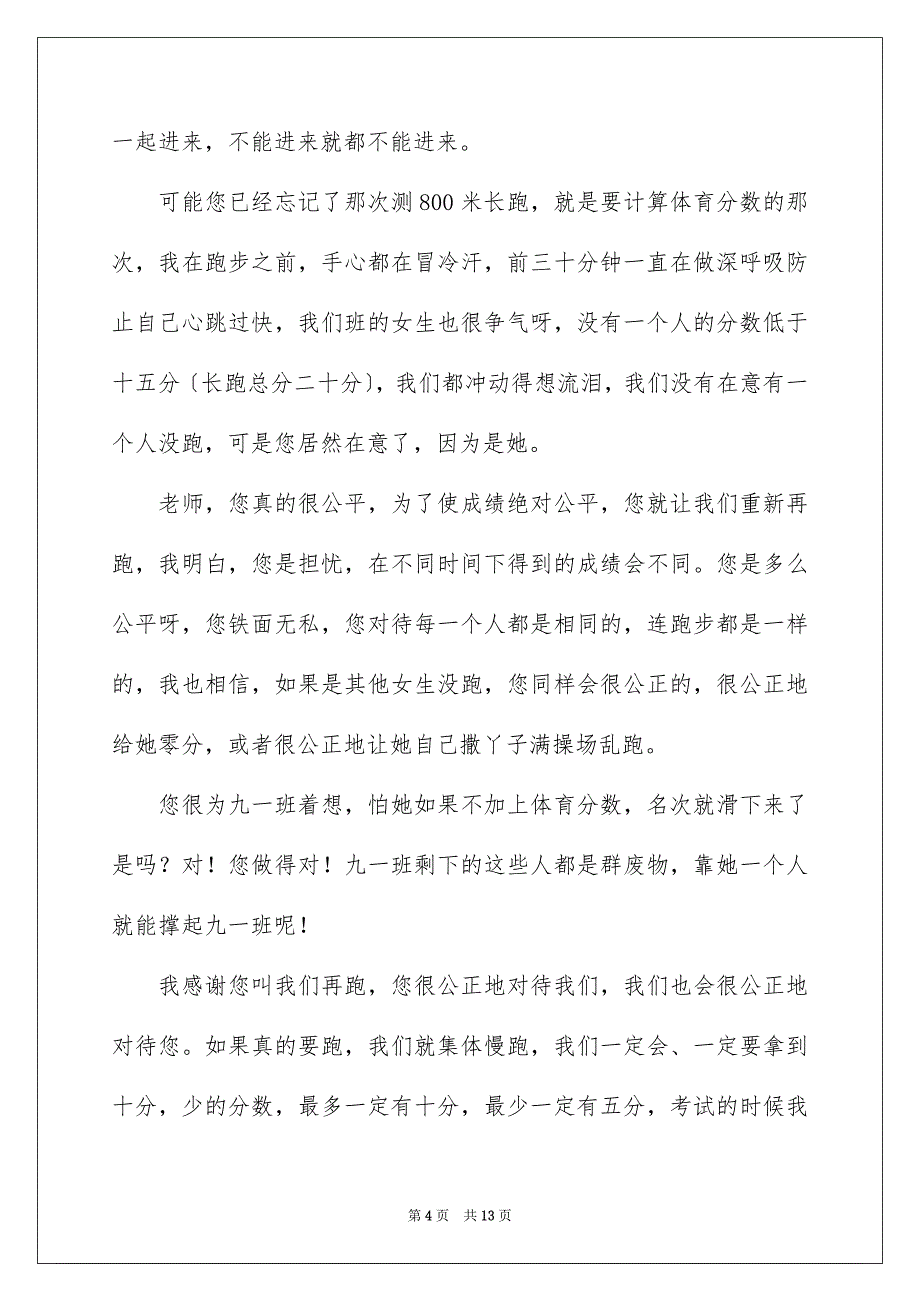 一起进来，不能进来就都不能进来。
可能您已经忘记了那次测 800 米长跑，就是要计算体育分数的那
次，我在跑步之前，手心都在冒冷汗，前三十分钟一直在做深呼吸防
止自己心跳过快，我们班的女生也很争气呀，没有一个人的分数低于
十五分〔长跑总分二十分〕，我们都冲动得想流泪，我们没有在意有一
个人没跑，可是您居然在意了，因为是她。
老师，您真的很公平，为了使成绩绝对公平，您就让我们重新再
跑，我明白，您是担忧，在不同时间下得到的成绩会不同。您是多么
公平呀，您铁面无私，您对待每一个人都是相同的，连跑步都是一样
的，我也相信，如果是其他女生没跑，您同样会很公正的，很公正地
给她零分，或者很公正地让她自己撒丫子满操场乱跑。
您很为九一班着想，怕她如果不加上体育分数，名次就滑下来了
是吗？对！您做得对！九一班剩下的这些人都是群废物，靠她一个人
就能撑起九一班呢！
我感谢您叫我们再跑，您很公正地对待我们，我们也会很公正地
对待您。如果真的要跑，我们就集体慢跑，我们一定会、一定要拿到
十分，少的分数，最多一定有十分，最少一定有五分，考试的时候我
第 4 页 共 13 页